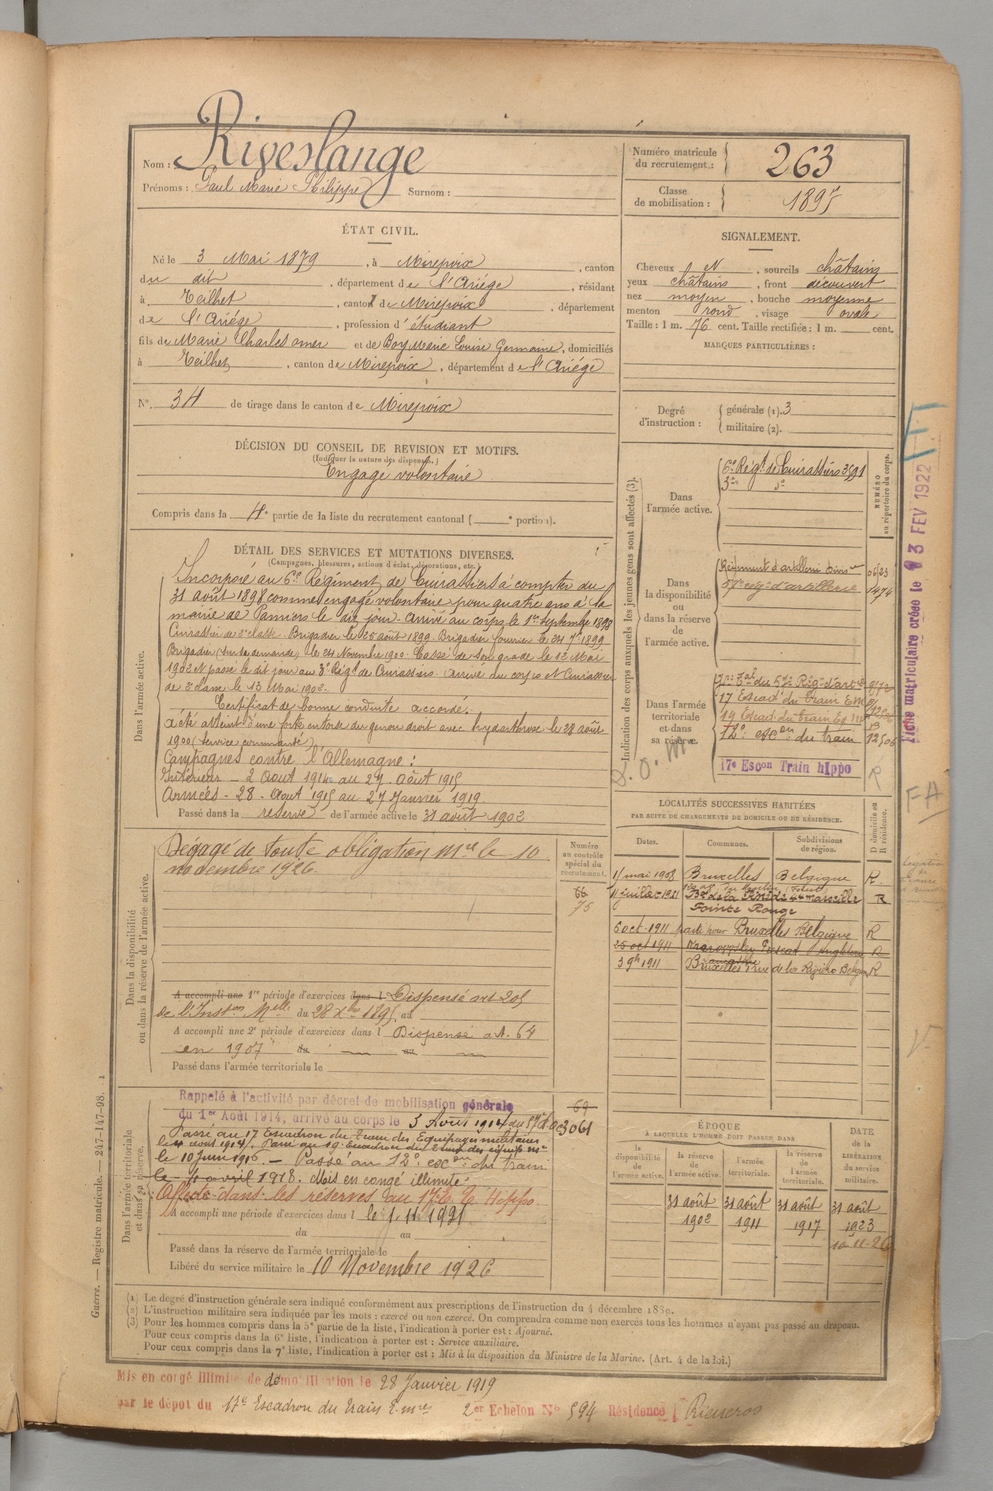 Nom : Riveslange
Prénoms : Paul Marie Philippe Surnom :
Numéro matricule du recrutement : 263
Classe de mobilisation : 1895
ÉTAT CIVIL.
Né le 3 Mai 1879, à Mirepoix, canton
du dit, département de l'Ariège, résidant
à Teilhet, canton de Mirepoix, département
de l'Ariège, profession d'étudiant
fils de Marie Charles Omer et de Boy Marie Louise Germaine, domiciliés
à Teilhet, canton de Mirepoix, département de l'Ariège
N° 34 de tirage dans le canton de Mirepoix
SIGNALEMENT.
Cheveux N, sourcils châtains
yeux châtains, front découvert
nez moyen, bouche moyenne
menton rond, visage ovale
Taille : 1 m. 76 cent. Taille rectifiée : 1 m. cent.
MARQUES PARTICULIÈRES :
Degré d'instruction : générale (1). 3
militaire (2).
DÉCISION DU CONSEIL DE REVISION ET MOTIFS.
(Indiquer la nature des dispenses.)
Engagé volontaire
Compris dans la 4e partie de la liste du recrutement cantonal ( e portion).
DÉTAIL DES SERVICES ET MUTATIONS DIVERSES.
(Campagnes, blessures, actions d'éclat, décorations, etc.)
Dans l'armée active.
Incorporé au 6e Régiment de Cuirassiers à compter du
31 août 1898 comme engagé volontaire pour quatre ans à la
mairie de Pamiers le dit jour. Arrivé au corps le 1er septembre 1898
Cuirassier de 2e classe. Brigadier le 25 août 1899. Brigadier fourrier le 24 7bre 1899
Brigadier (sur sa demande) le 24 Novembre 1900. Cassé de son grade le 12 Mai
1902 passé le dit jour au 3e Régt de Cuirassiers arrivé au corps et Cuirassier
de 2e classe le 13 Mai 1902.
Certificat de bonne conduite accordé.
A été atteint d'une forte entorse du genou droit avec hydarthrose le 28 août
1900 (Service commandé)
Campagnes contre l'Allemagne :
Intérieur - 2 Août 1914 au 27 août 1915
Armées - 28 Août 1915 au 27 Janvier 1919
Passé dans la réserve de l'armée active le 31 août 1902
Indication des corps auxquels les jeunes gens sont affectés (3).
NUMÉRO au répertoire du corps.
Dans l'armée active.
6e Régt de Cuirassiers 3591
3e do
Dans la disponibilité ou dans la réserve de l'armée active.
Régiment d'artillerie
57e régt d'artillerie 1474
Dans l'armée territoriale et dans sa réserve.
17 Escad du Train
19 Escad du Train
12e escon du train
17e Escon Train hippo
R
Fiche matriculaire créée le 13 FEV 1922
FA
Dans la disponibilité ou dans la réserve de l'armée active.
Dégagé de toute obligation Mre le 10
novembre 1926
Numéro au contrôle spécial du recrutement.
66
75
A accompli une 1re période d'exercices dans l Dispensé art 205
de l'Inston Melle du 28 Xbre 1895 au
A accompli une 2e période d'exercices dans l Dispensé art. 64
en 1907 du au
Passé dans l'armée territoriale le
LOCALITÉS SUCCESSIVES HABITÉES
PAR SUITE DE CHANGEMENTS DE DOMICILE OU DE RÉSIDENCE.
Dates. Communes. Subdivisions de région. D domicile ou R résidence.
1 mai 1908 Bruxelles Belgique R
Marseille R
Pointe Rouge
6 oct 1911 parti pour Bruxelles Belgique R
25 oct 1911 R
3 9bre 1911 Bruxelles R
Dans l'armée territoriale et dans sa réserve.
Rappelé à l'activité par décret de mobilisation générale
du 1er Août 1914, arrivé au corps le 3 Août 1914 au 57e
69
3061
Passé au 17 Escadron du train des Equipages militaires
le 10 Juin 1916. - Passé au 12e escon du train
le 10 avril 1918. Mis en congé illimité.
Affecté dans les réserves au 17e 
A accompli une période d'exercices dans l
du au
Passé dans la réserve de l'armée territoriale le
Libéré du service militaire le 10 Novembre 1926
ÉPOQUE
À LAQUELLE L'HOMME DOIT PASSER DANS
la disponibilité de l'armée active. la réserve de l'armée active. l'armée territoriale. la réserve de l'armée territoriale. DATE de la LIBÉRATION du service militaire.
31 août 1902 31 août 1911 31 août 1917 31 août 1923
10-11-26
(1) Le degré d'instruction générale sera indiqué conformément aux prescriptions de l'instruction du 4 décembre 1889.
(2) L'instruction militaire sera indiquée par les mots : exercé ou non exercé. On comprendra comme non exercés tous les hommes n'ayant pas passé au drapeau.
(3) Pour les hommes compris dans la 5e partie de la liste, l'indication à porter est : Ajourné.
Pour ceux compris dans la 6e liste, l'indication à porter est : Service auxiliaire.
Pour ceux compris dans la 7e liste, l'indication à porter est : Mis à la disposition du Ministre de la Marine. (Art. 4 de la loi.)
Guerre. — Registre matricule. — 247-147-98. 1
Mis en congé illimité de démobilisation le 28 Janvier 1919
par le dépôt du 17e Escadron du Train 2er Echelon No 594 Résidence